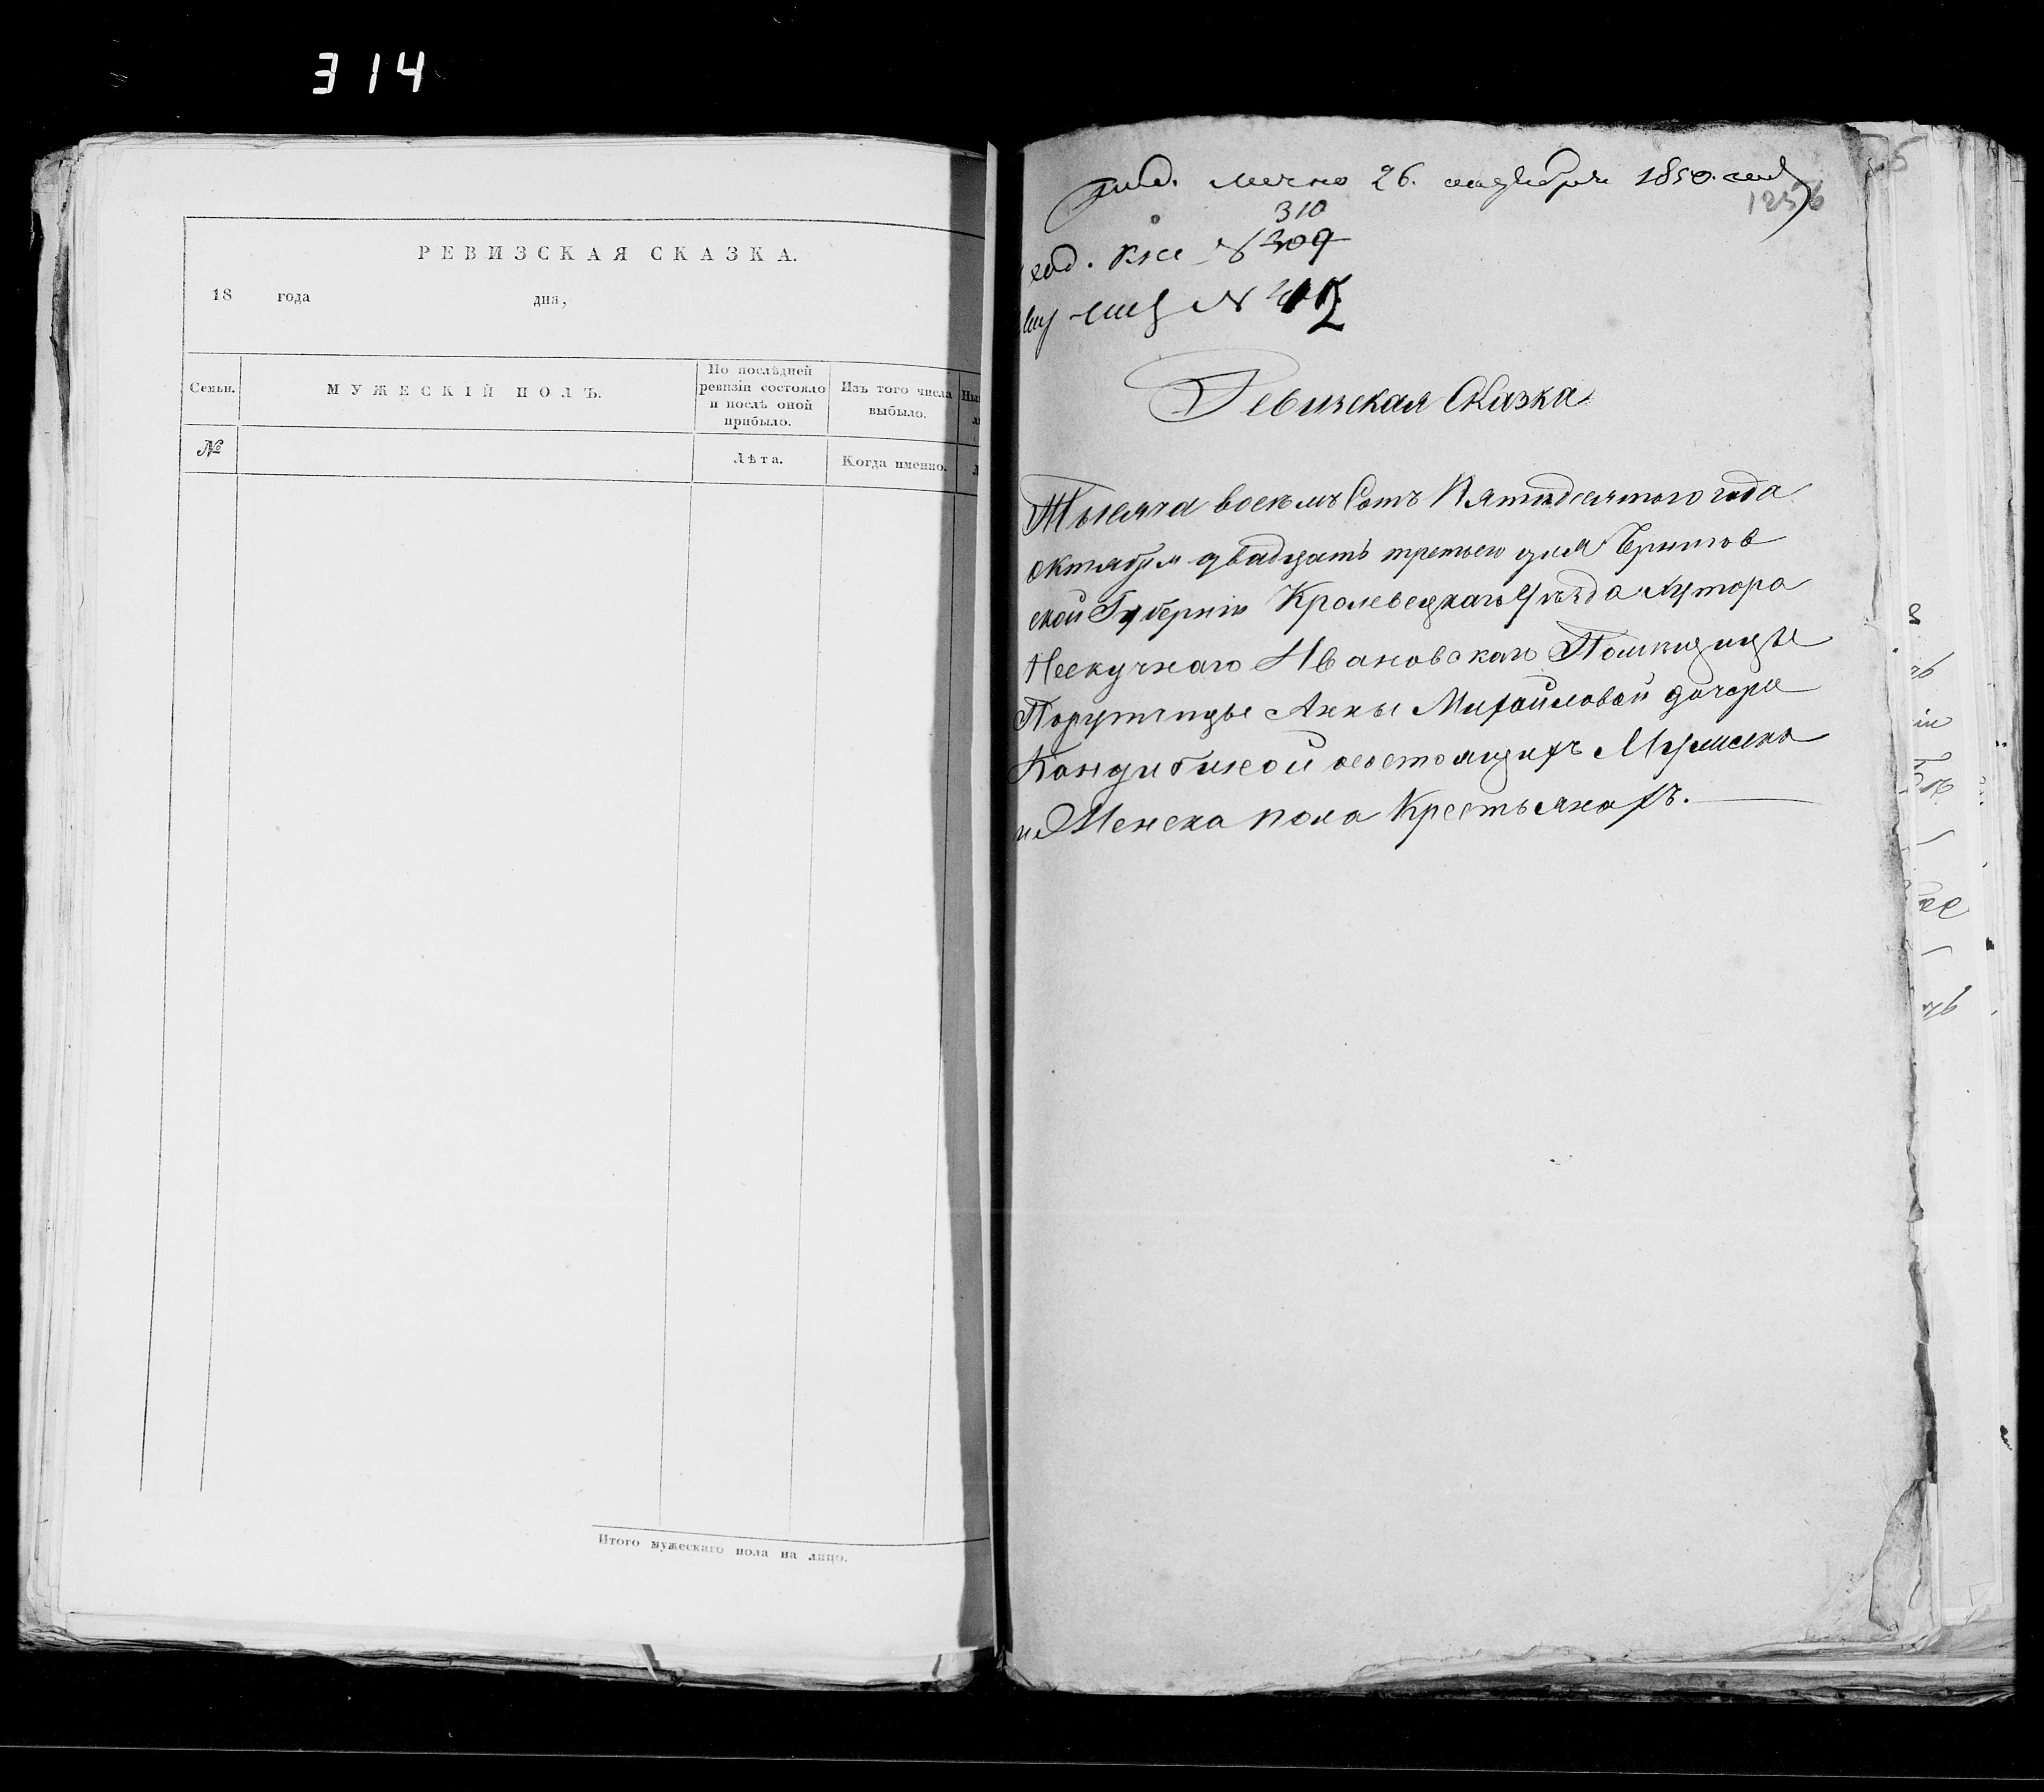 314
РЕВИЗСКАЯ СКАЗКА.
18 года дня,
Семьи.
МУЖЕСКІЙ ПОЛЪ.
По послѣдней
ревизіи состояло
и послѣ оной
прибыло.
Изъ того числа
выбыло.
№
Лѣта.
Когда именно.
Итого мужескаго пола на лицо.
лично 26. октября 1850.
1256
310
№ 309
№
Ревизская Сказка
Тысяча восемъ Сотъ Пятидесятого года
октября двадцать третьего дня Чернигов
ской Губерніи Кролевецкаго Уѣзда хутора
Нескучнаго Ивановскаго Помѣщицы
Поручицы Анны Михайловой дочери
Кандибиной состоящихъ Мужска
и Женска пола Крестьянахъ.